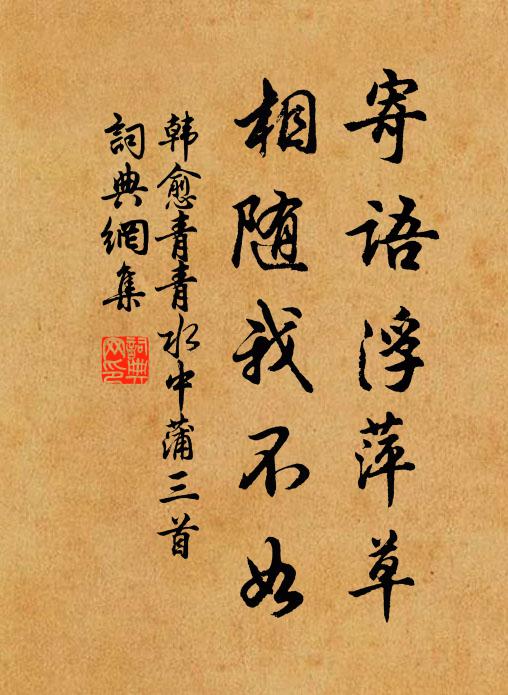 寄语浮萍草
相随我不如
韩愈青青水中蒲三首
詞典網集
詞典網印